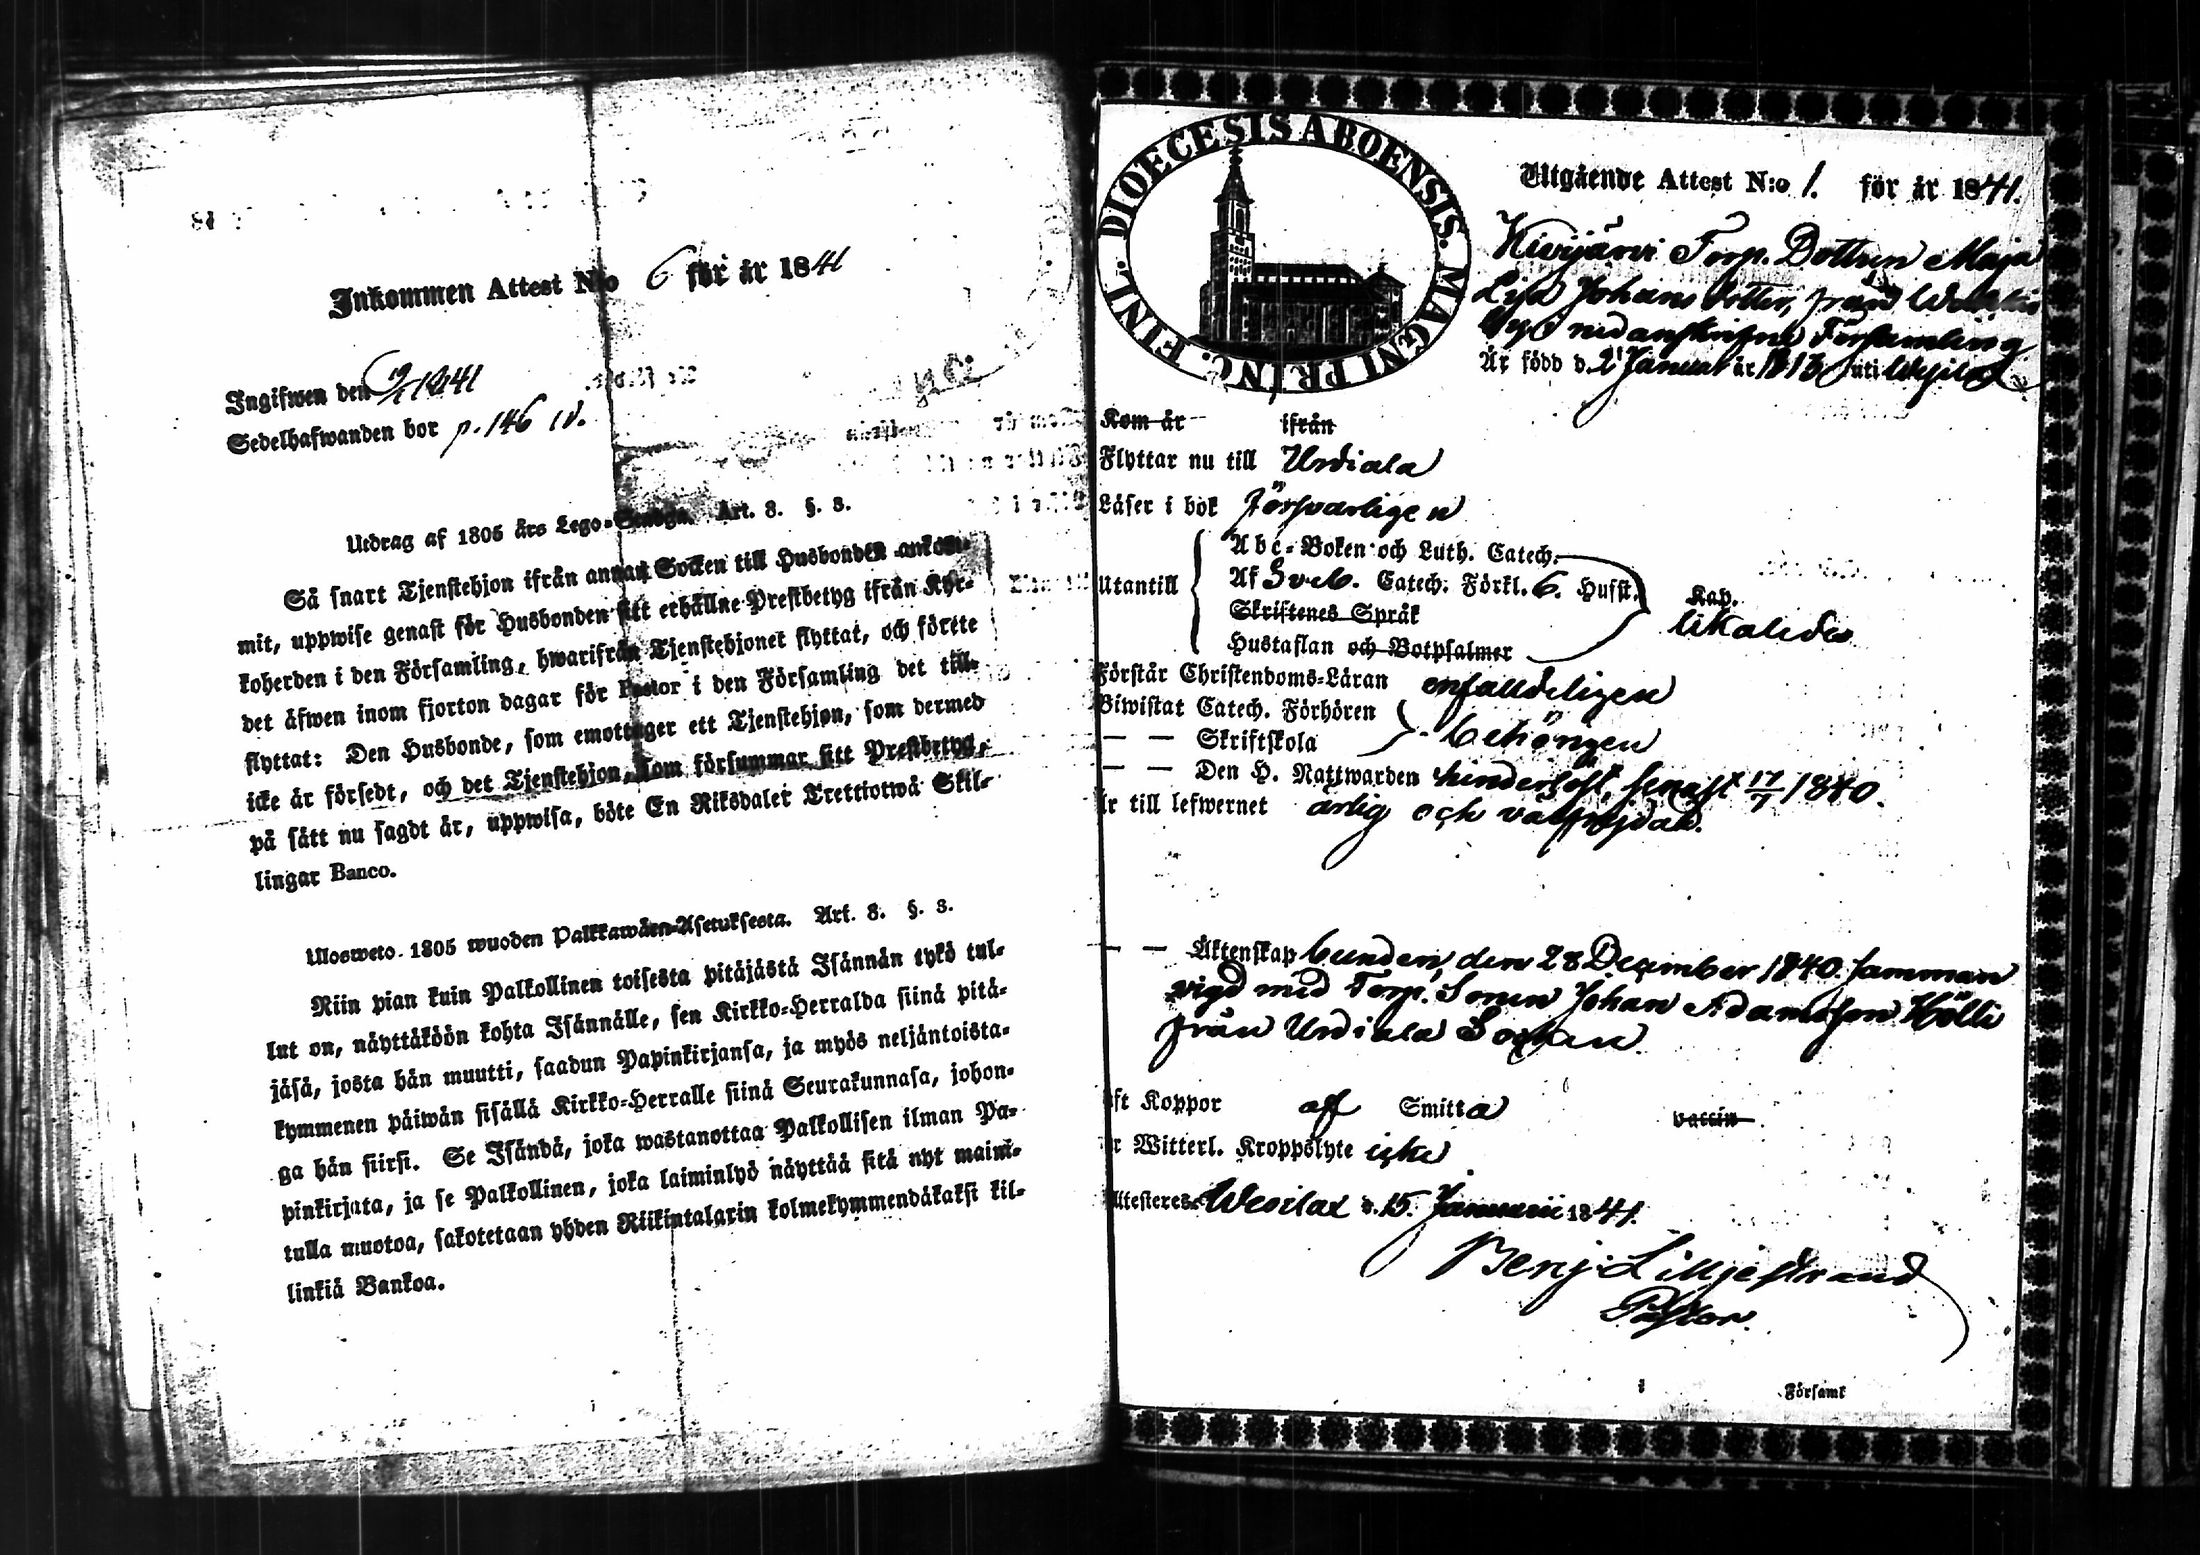 Inkommen Attest N:o 6 för år 1841
Ingifwen den 19/1 1841
Sedelhafwanden bor p. 146
Utdrag af 1805 års Lego-Stadga. Art. 8. §. 3.
Så snart Tjenstehjon ifrån annan Socken till Husbonden ankom-
mit, uppwise genast för Husbonden sitt erhållne Prestbetyg ifrån Kyr-
koherden i den Församling, hwarifrån Tjenstehjonet flyttat, och förete
det äfwen inom fjorton dagar för Pastor i den Församling det till-
flyttat: Den Husbonde, som emottager ett Tjenstehjon, som dermed
icke är försedt, och det Tjenstehjon, som försummar sitt Prestbetyg,
på sätt nu sagdt är, uppwisa, böte En Riksdaler Trettiotwå Skil-
lingar Banco.
Ulosweto 1805 wuoden Palkkawäen-Asetuksesta. Art. 8. §. 3.
Niin pian kuin Palkollinen toisesta pitäjästä Isännän tykö tul-
lut on, näyttäköön kohta Isännälle, sen Kirkko-Herralda siinä pitä-
jäsä, josta hän muutti, saadun Papinkirjansa, ja myös neljäntoista-
kymmenen päiwän sisällä Kirkko-Herralle siinä Seurakunnasa, johon-
ga hän siirsi. Se Isändä, joka wastanottaa Palkollisen ilman Pa-
pinkirjata, ja se Palkollinen, joka laiminlyö näyttää sitä nyt maini-
tulla muotoa, sakotetaan yhden Riikintalarin kolmekymmendäkaksi kil-
linkiä Bankoa.
DIOECESIS ABOENSIS. MAGNI PRINC. FINL.
Utgående Attest N:o 1. för år 1841.
Kivijärvi Torp. Dottren Maja
Lisa Johans dotter, från
by i nedanskrifne Församling
Är född d. 2 Januar år 1818 uti
Kom år ifrån
Flyttar nu till Urdiala
Läser i bok försvarligen
Abc-Boken och Luth. Catech.
Utantill Af Sveb. Catech. Förkl. 6. Husst. Kap.
Skriftenes Språk likaledes
Hustaflan och Botpsalmer
Förstår Christendoms-Läran enfaldeligen
Biwistat Catech. Förhören
— — Skriftskola behörigen
— — Den H. Nattwarden hinderlöst, senast 17/7 1840.
Är till lefwernet ärlig och välfrejdad.
— — Äktenskap bunden, den 28 December 1840 samman
vigd med Torp. Sonen Johan Adamsson Hölli
från Urdiala Socken.
aft Koppor af Smitta vaccin
är Witterl. Kroppslyte icke
Attesteres Wesilax d. 15. Januarii 1841.
Benj. Lilljestrand
Pastor.
i Församl